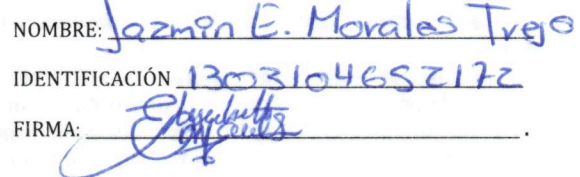 NOMBRE: Jazmin E. Morales Trejo
IDENTIFICACIÓN 1303104652172
FIRMA: